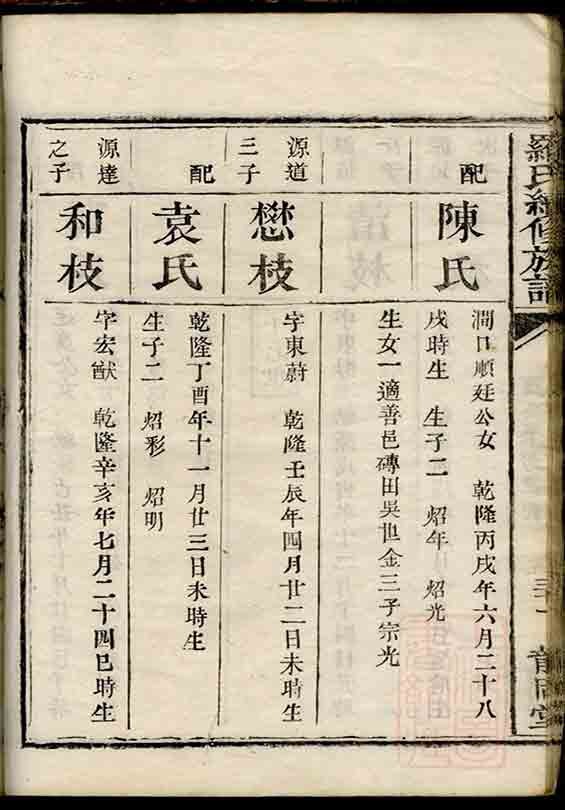 羅氏續修族譜
三十一
配
陳氏
澗口順廷公女 乾隆丙戌年六月二十八
戌時生 生子二 炤年 炤光
生女一適善邑磚田吳世金三子宗光
源道
三子
懋枝
字東蔚 乾隆壬辰年四月廿二日未時生
配
袁氏
乾隆丁酉年十一月廿三日未時生
生子二 炤彩 炤明
源達
之子
和枝
字宏猷 乾隆辛亥年七月二十四巳時生